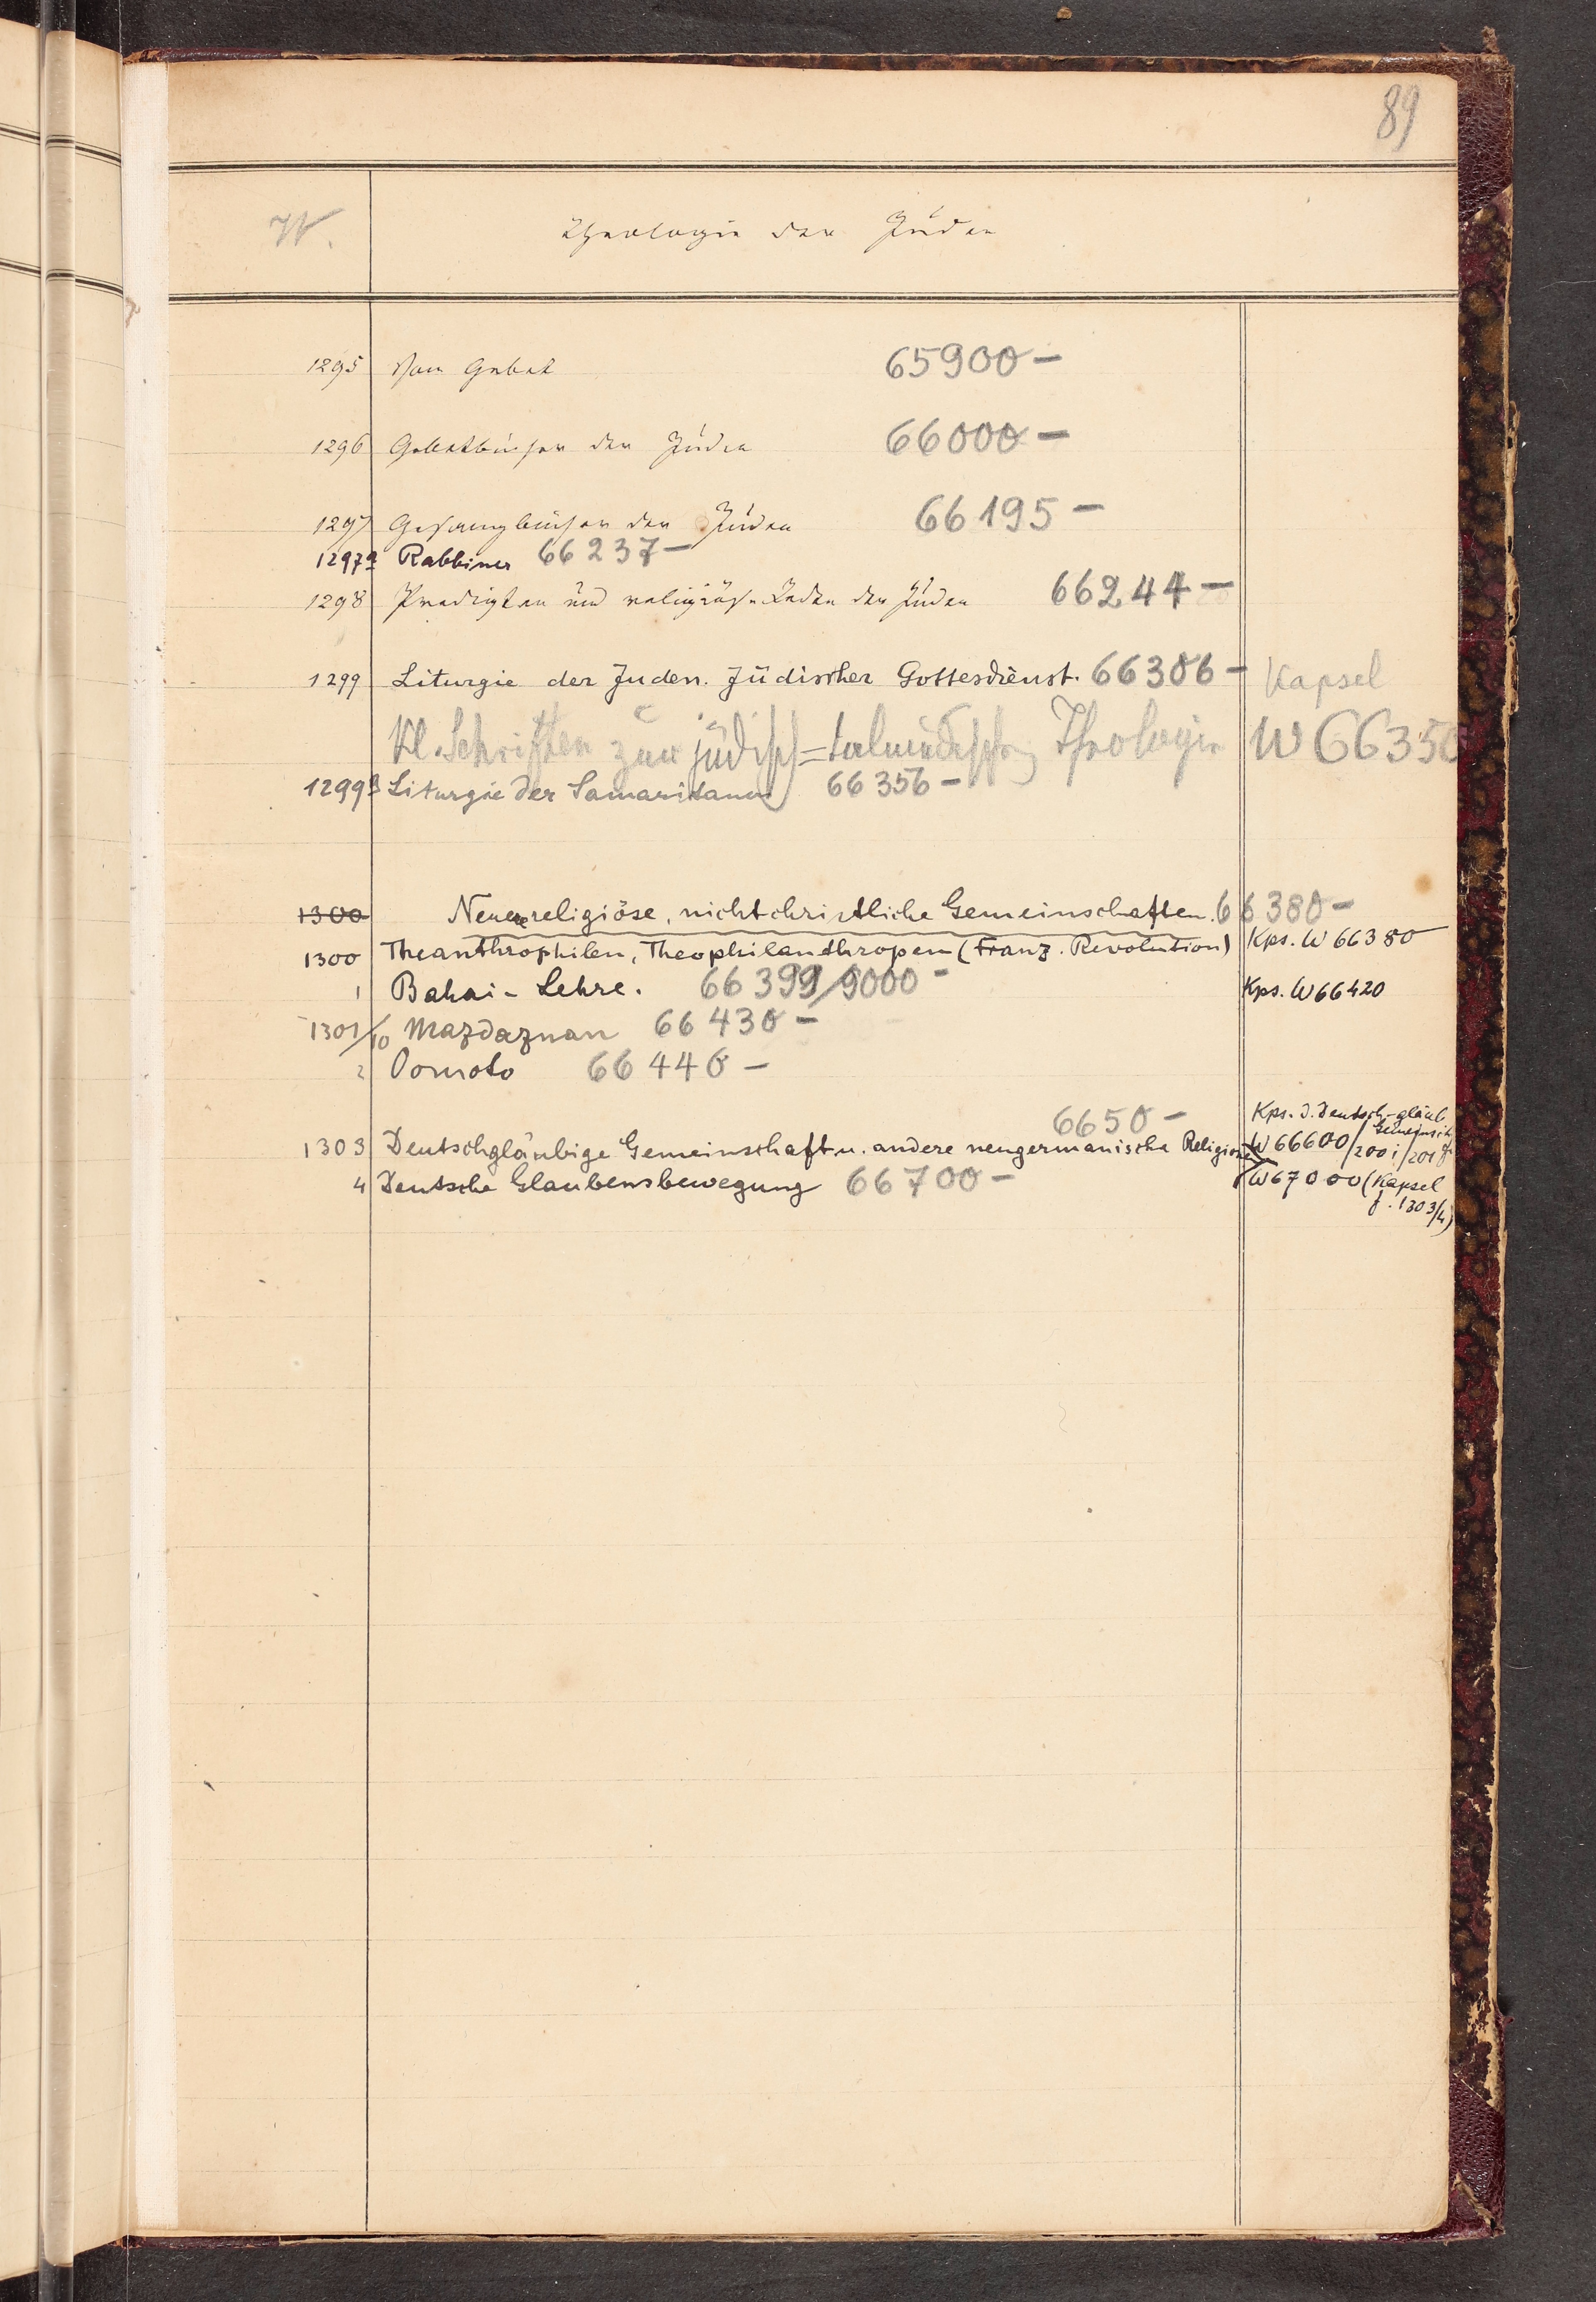 89
W.
Theologie der Juden
1295 Vom Gebet 65900 –
1296 Gebetbücher der Juden 66000 –
1297 Gesangbücher der Juden 66195 –
1297a Rabbiner 66237 –
1298 Predigten und religiöse Reden der Juden 66244 –
1299 Liturgie der Juden. Jüdischer Gottesdienst. 66306 – Kapsel
Kl. Schriften zur jüdisch=talmudischen Theologie W 66350
1299a Liturgie der Samaritaner 66356 –
1300 Neuere religiöse, nichtchristliche Gemeinschaften. 66380 –
1300 Theanthrophilen, Theophilanthropen (Franz. Revolution) Kps. W 66380
1 Bahai-Lehre. 66399/9000 – Kps. W 66420
1301/10 Mazdaznan 66430 –
2 Oomoto 66440 –
6650 – Kps. d. Deutsch-gläub
Gemeinsch
1303 Deutschgläubige Gemeinschaft u. andere neugermanische Religionen W 66600/200i/201
4 Deutsche Glaubensbewegung 66700 – W 67000 (Kapsel
f. 1303/4)